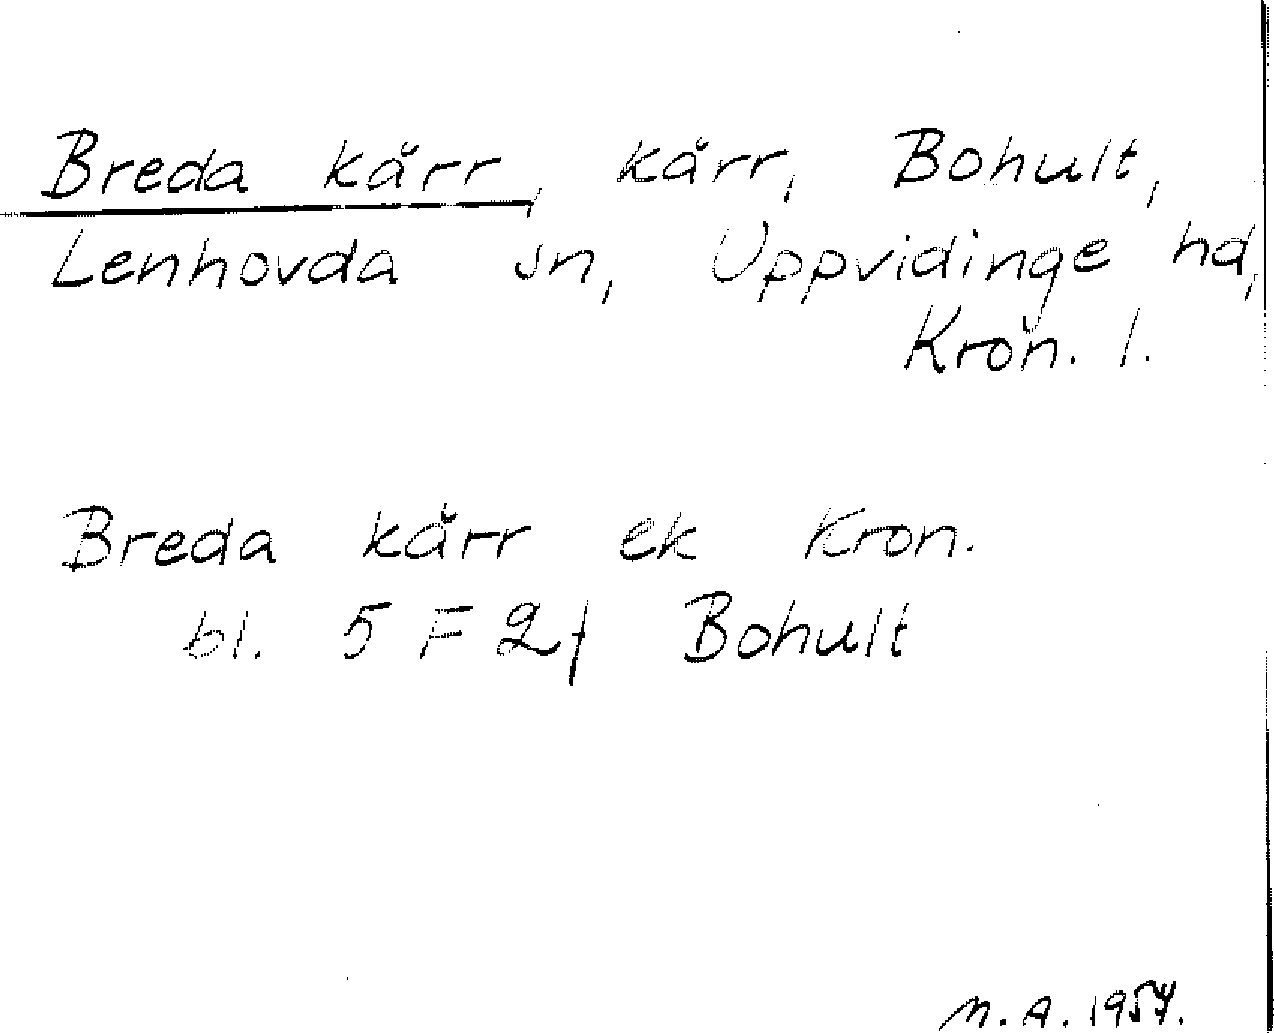 Breda kärr, kärr, Bohult,
Lenhovda sn, Uppvidinge hd,
Kron. l.
Breda kärr ek Kron.
bl. 5 F 2f Bohult
M. A. 1954.